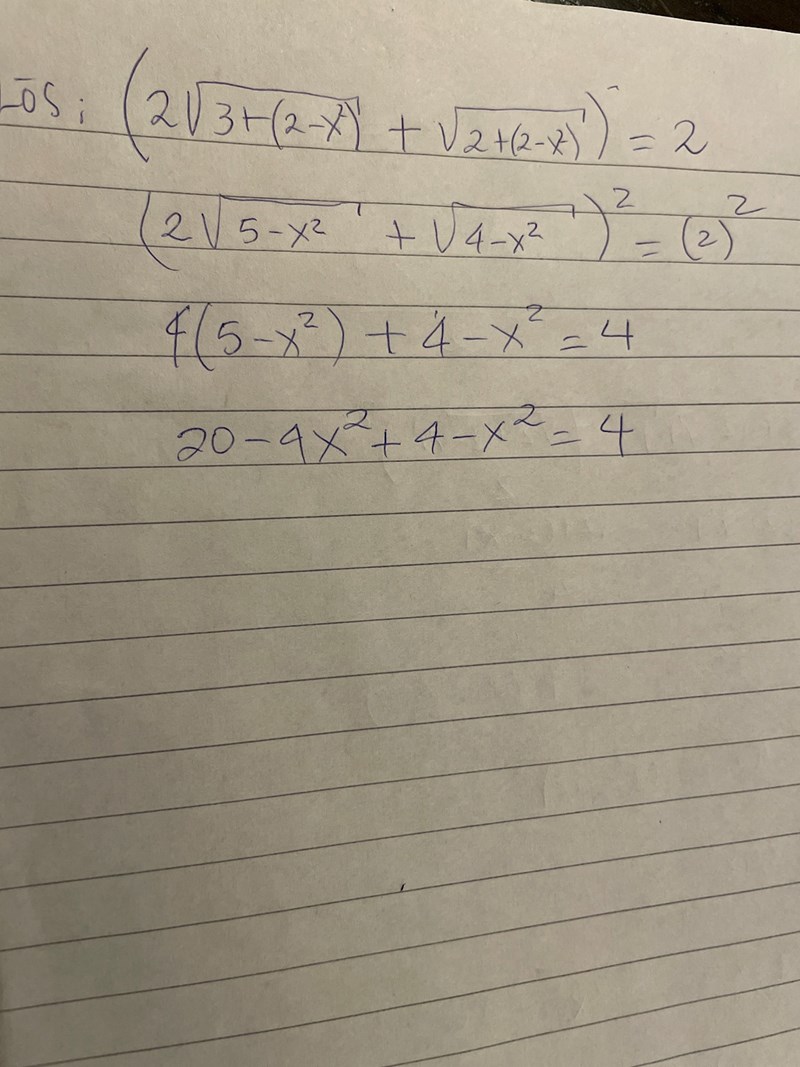 LÖS: (2√(3+(2-x²)) + √(2+(2-x²))) = 2
(2√(5-x²) + √(4-x²))² = (2)²
4(5-x²) + 4-x² = 4
20-4x²+4-x² = 4